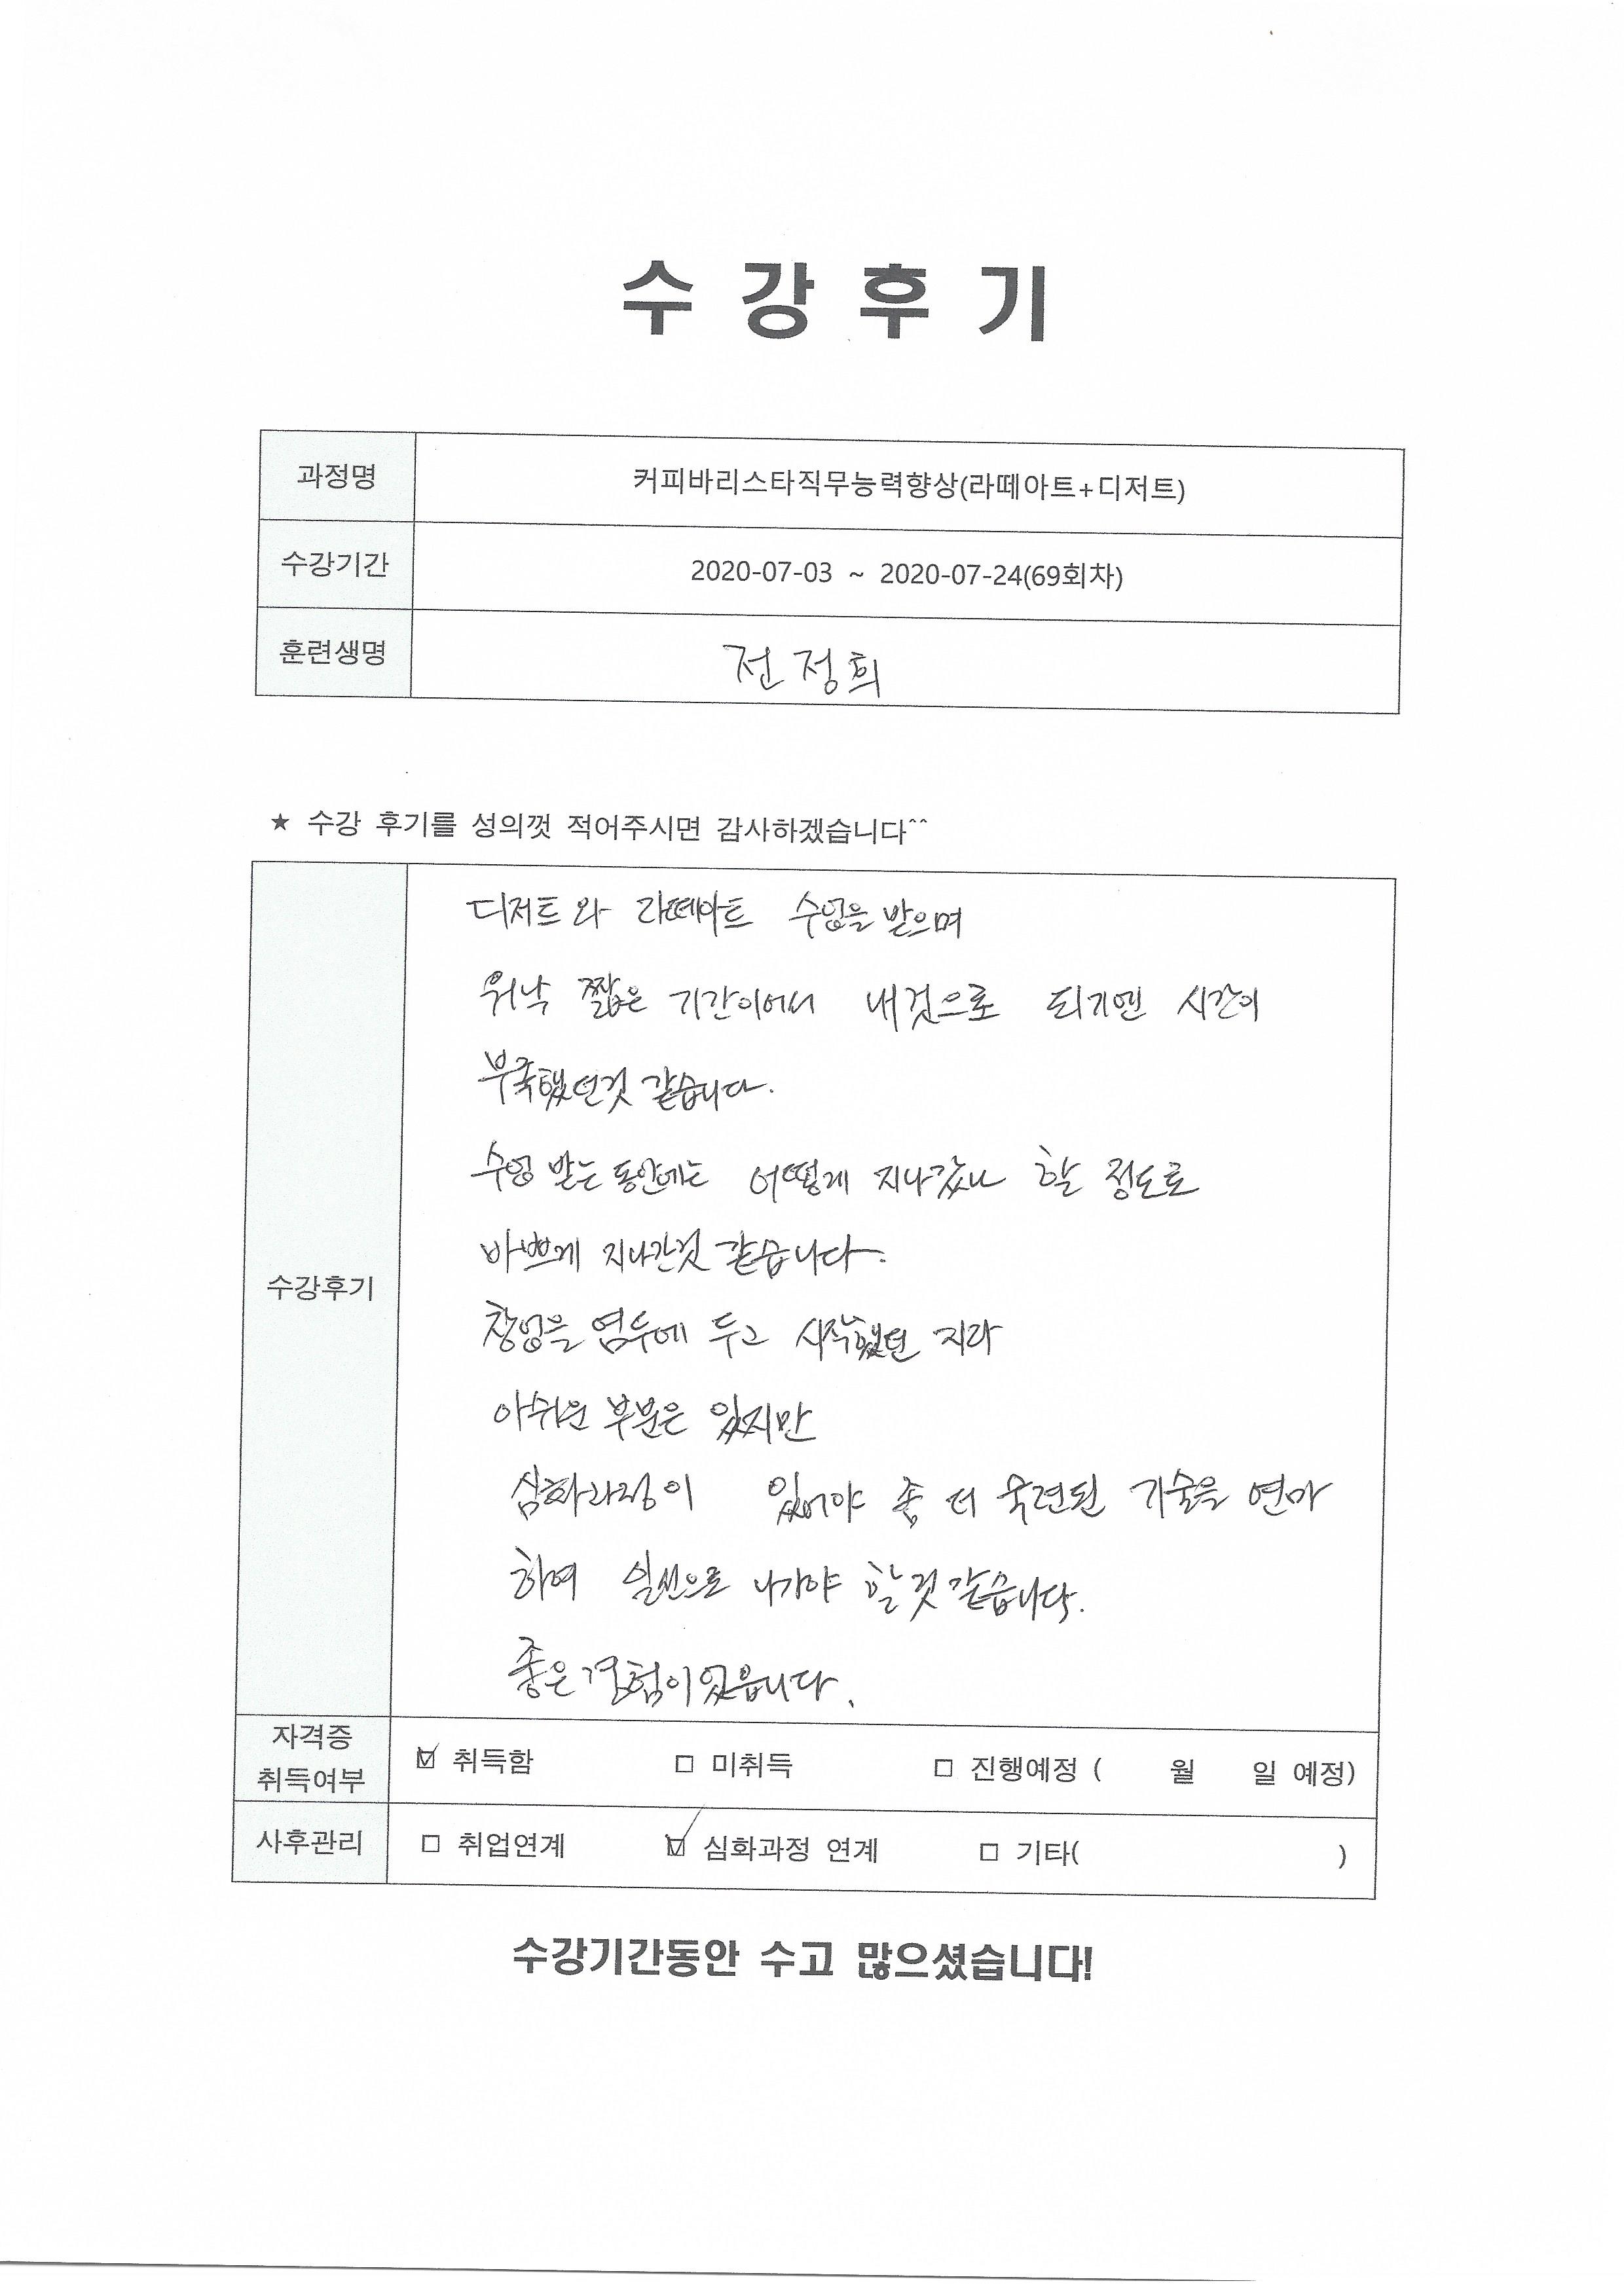 수 강 후 기
과정명 커피바리스타직무능력향상(라떼아트+디저트)
수강기간 2020-07-03 ~ 2020-07-24(69회차)
훈련생명 전정희
★ 수강 후기를 성의껏 적어주시면 감사하겠습니다^^
디저트와 라떼아트 수업을 받으며
워낙 짧은 기간이어서 내것으로 되기엔 시간이
부족했던것 같습니다.
수업 받는 동안에는 어떻게 지나갔나 할 정도로
바쁘게 지나간것 같습니다.
수강후기
창업을 염두에 두고 시작했던 지라
아쉬운 부분은 있지만
심화과정이 있어야 좀 더 숙련된 기술을 연마
하여 일선으로 나가야 할것 같습니다.
좋은경험이였읍니다.
자격증
취득여부
☑ 취득함 □ 미취득 □ 진행예정 ( 월 일 예정)
사후관리 □ 취업연계 ☑ 심화과정 연계 □ 기타( )
수강기간동안 수고 많으셨습니다!